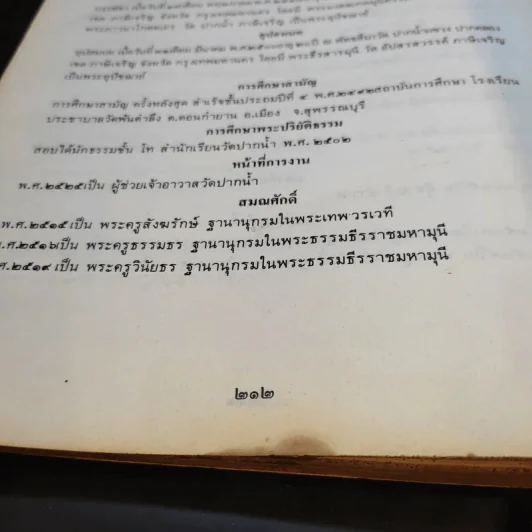 อุปสมบท
เป็นพระอุปัชฌาย์
การศึกษาสามัญ
การศึกษาสามัญ ครั้งหลังสุด สำเร็จชั้นประถมปีที่ ๔ พ.ศ.๒๔๙๒สถาบันการศึกษา โรงเรียน
ประชาบาลวัดพันตำลึง ต.ดอนกำยาน อ.เมือง จ.สุพรรณบุรี
การศึกษาพระปริยัติธรรม
สอบได้นักธรรมชั้น โท สำนักเรียนวัดปากน้ำ พ.ศ. ๒๕๐๒
หน้าที่การงาน
พ.ศ.๒๕๒๕เป็น ผู้ช่วยเจ้าอาวาสวัดปากน้ำ
สมณศักดิ์
พ.ศ.๒๕๑๕เป็น พระครูสังฆรักษ์ ฐานานุกรมในพระเทพวรเวที
พ.ศ.๒๕๑๖เป็น พระครูธรรมธร ฐานานุกรมในพระธรรมธีรราชมหามุนี
ศ.๒๕๑๙เป็น พระครูวินัยธร ฐานานุกรมในพระธรรมธีรราชมหามุนี
๒๑๒